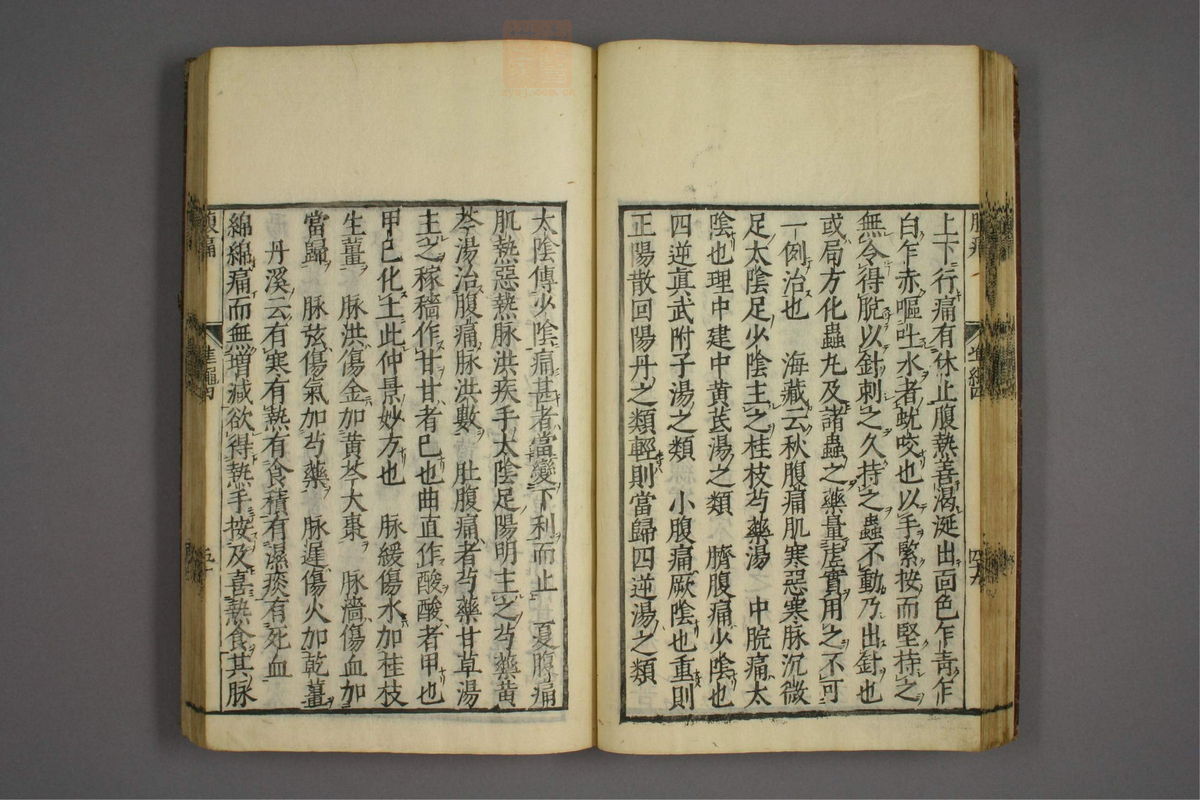 上下行痛有休止腹熱善渴涎出面色乍青乍
白乍赤嘔吐水者蛟咬也以手緊按而堅持之
無令得脫以針刺之久持之蟲不動乃出針也
或局方化蟲丸及諸蟲之藥量虗實用之不可
一例治也　海藏云秋腹痛肌寒惡寒脉沉微
足太陰足少陰主之桂枝芍藥湯　中脘痛太
陰也理中建中黄芪湯之類　臍腹痛少陰也
四逆真武附子湯之類　小腹痛厥陰也重則
正陽散回陽丹之類輕則當歸四逆湯之類
四十九
太陰傳少陰痛甚者當變下利而止　夏腹痛
肌熱惡熱脉洪疾手太陰足陽明主之芍藥黄
芩湯治腹痛脉洪數　肚腹痛者芍藥甘草湯
主之稼穡作甘甘者巳也曲直作酸酸者甲也
甲巳化土此仲景妙方也　脉緩傷水加桂枝
生薑　脉洪傷金加黄芩大棗　脉濇傷血加
當歸　脉弦傷氣加芍藥　脉遲傷火加乾薑
丹溪云有寒有熱有食積有濕痰有死血
綿綿痛而無增減欲得熱手按及喜熱食其脉